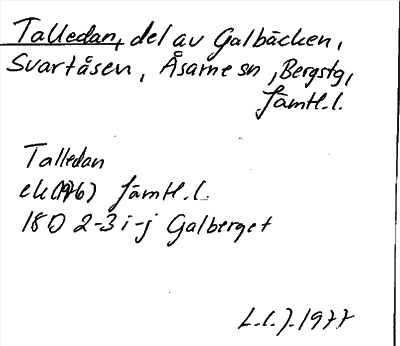 Talledan, del av Galbäcken,
Svartåsen, Åsarne sn, Bergstg,
Jämtl.l.
Talledan
ek(1976) Jämtl.l.
18D 2-3 i-j Galberget
L.l.J. 1977